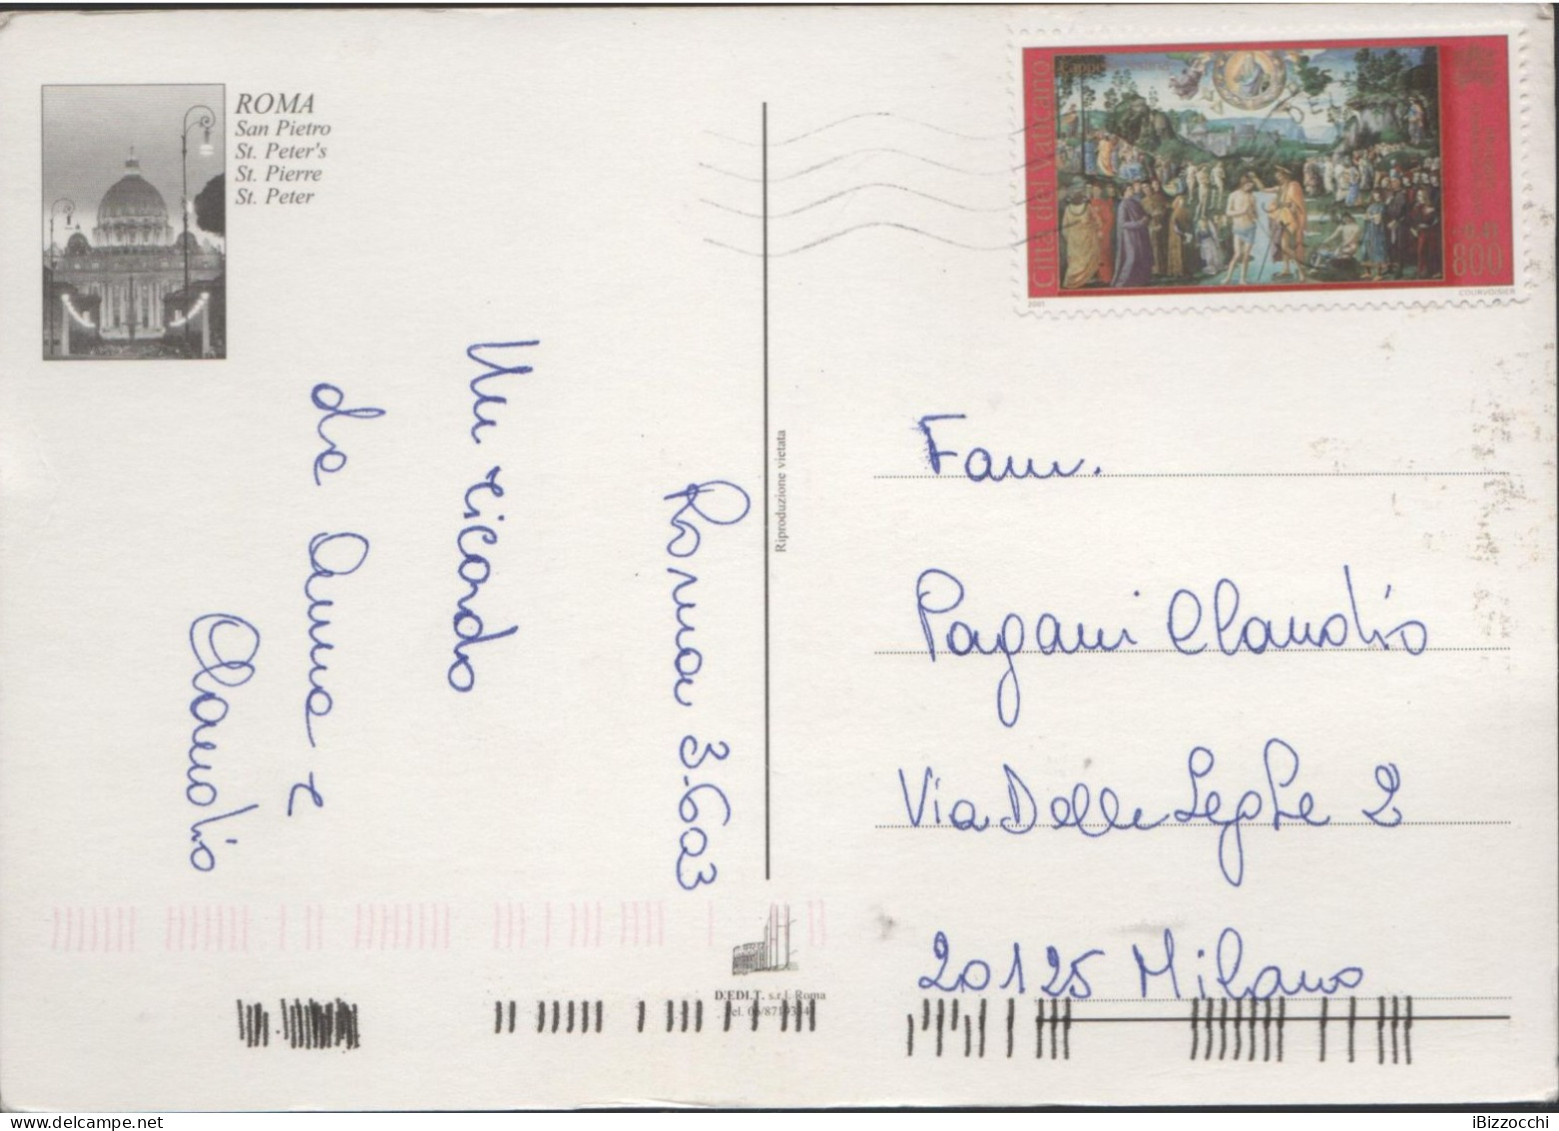 ROMA
San Pietro
St. Peter's
St. Pierre
St. Peter
Roma 3.6.03
Un ricordo
da Anna e
Claudio
Riproduzione vietata
D.EDI.T. s.r.l. Roma
Città del Vaticano
800
2001
COURVOISIER
Fam.
Pagani Claudio
Via Delle Leghe 2
20125 Milano
iBizzocchi